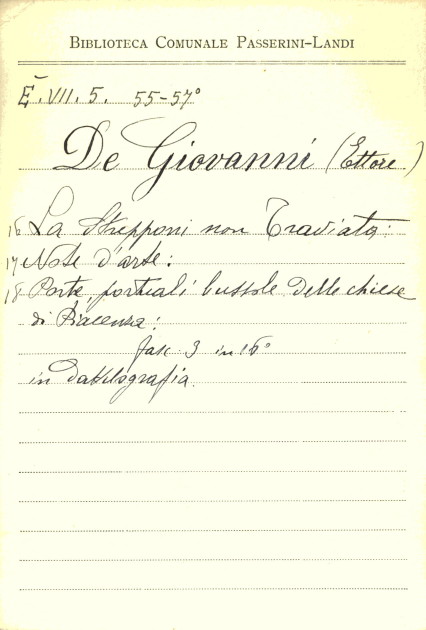 BIBLIOTECA COMUNALE PASSERINI-LANDI
Ē. VII. 5. 55-57°
De Giovanni (Ettore)
16 La Strepponi non Traviata:
17 Note d'arte:
18 Porte, portali bussole delle chiese
di Piacenza:
fasc. 3 in 16°
in dattilografia.